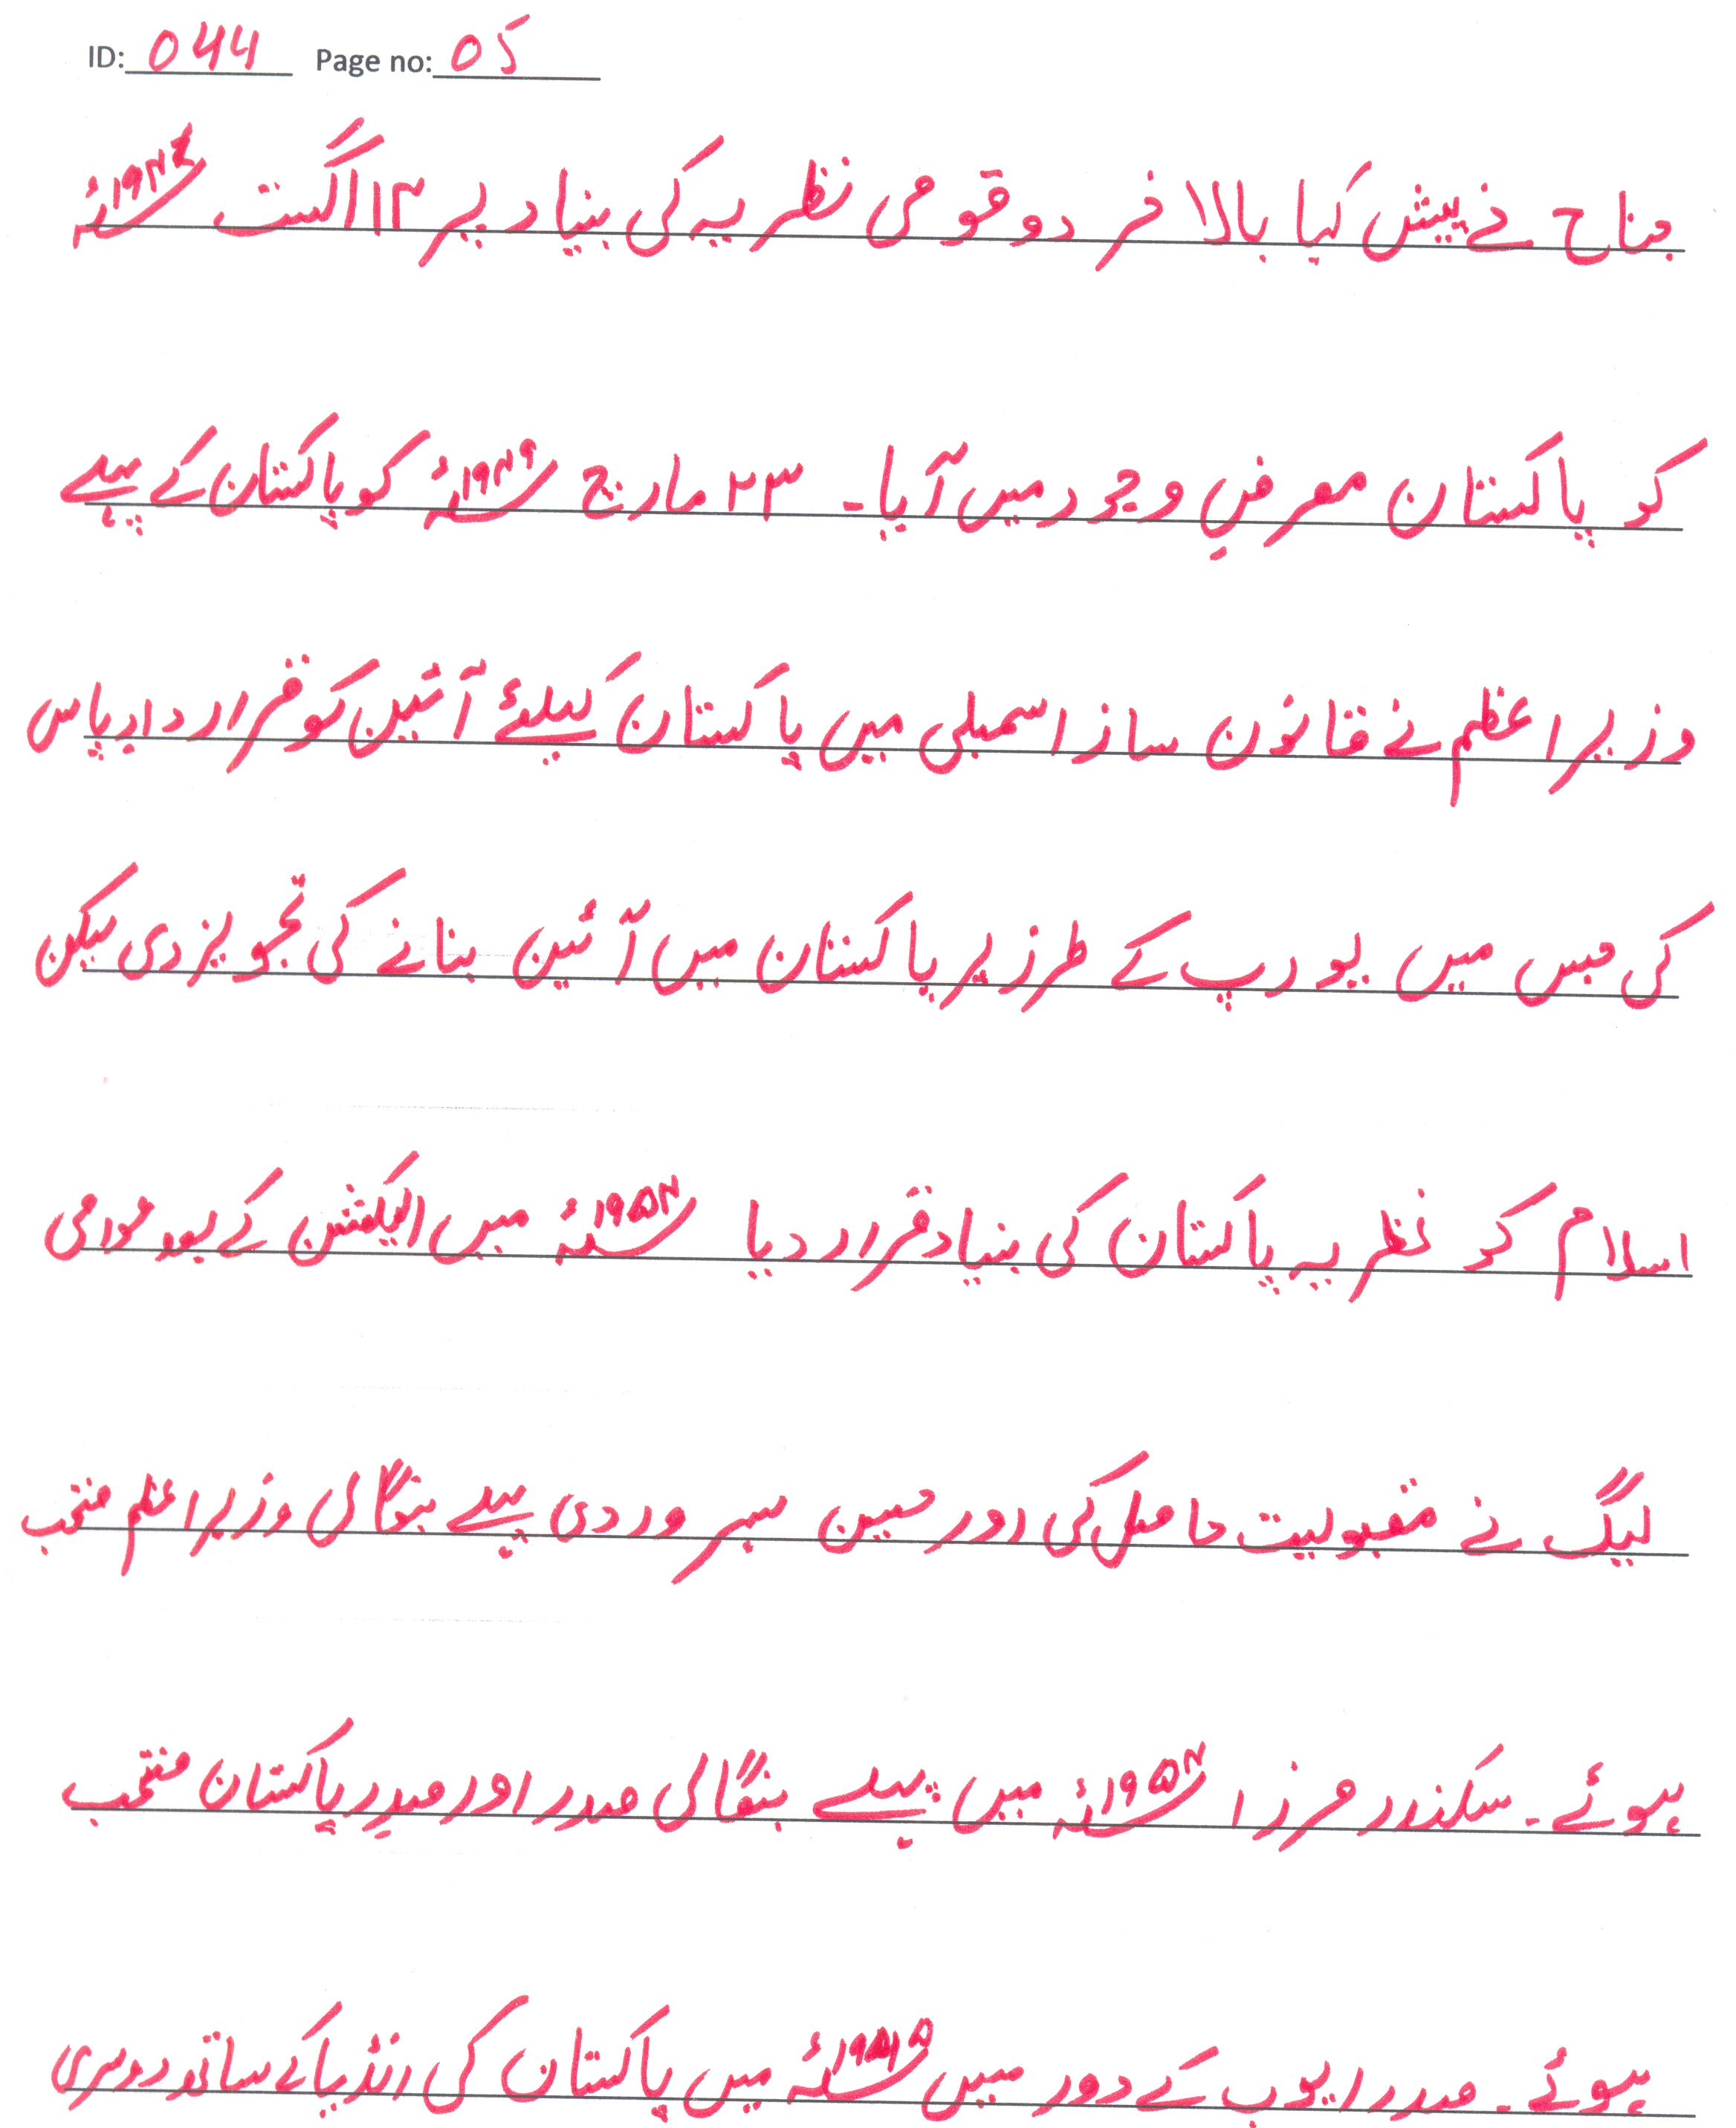 ID: 044 Page no: 05
جناح نے پیش کیا بالا خر دو قومی نظریہ کی بنیاد پر ۱۴ اگست ۱۹۴۷ء
کو پاکستان معرضِ وجود میں آیا۔ ۲۳ مارچ ۱۹۴۹ء کو پاکستان کے پہلے
وزیر اعظم نے قانون ساز اسمبلی میں پاکستان کیلئے آئین کو قرار داد پاس
کی جس میں یورپ کے طرز پر پاکستان میں آئین بنانے کی تجویز دی لیکن
اسلام کو نظریہ پاکستان کی بنیاد قرار دیا ۱۹۵۴ء میں الیکشن کے بعد عوامی
لیگ نے مقبولیت حاصل کی اور حسین سہروردی پہلے بنگالی وزیر اعظم منتخب
ہوئے۔ سکندر مرزا ۱۹۵۴ء میں پہلے بنگالی صدر اور صدرِ پاکستان منتخب
ہوئے۔ صدر ایوب کے دور میں میں پاکستان کی انڈیا کے ساتھ دوسری